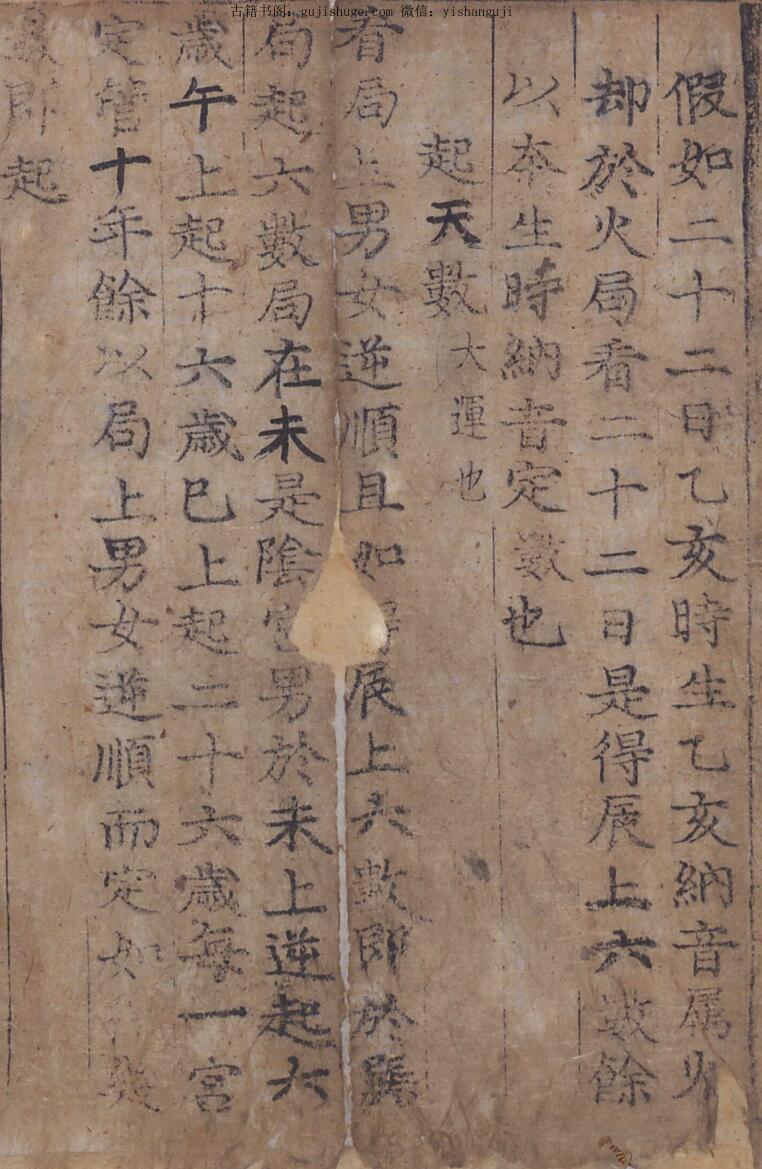 古籍书阁：gujishuge.com 微信：yishanguji
假如二十二日乙亥時生乙亥納音属火
却於火局看二十二日是得辰上六数餘
以夲生時納音定数也
起天數大運也
看局上男女逆順且如得辰上六數即於巽
局起六數局在未是陰宫男於未上逆起六
歲午上起十六歲巳上起二十六歲每一宫
定管十年餘以局上男女逆順而定如
即起